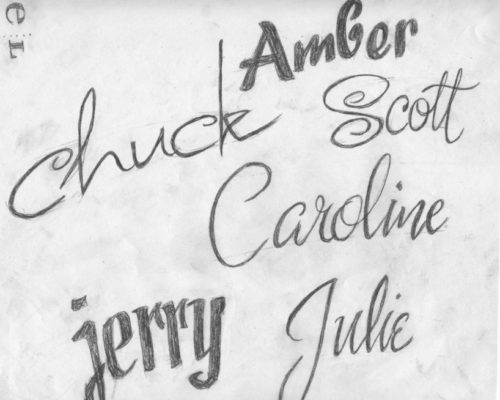 Amber
Scott
chuck
Caroline
jerry
Julie